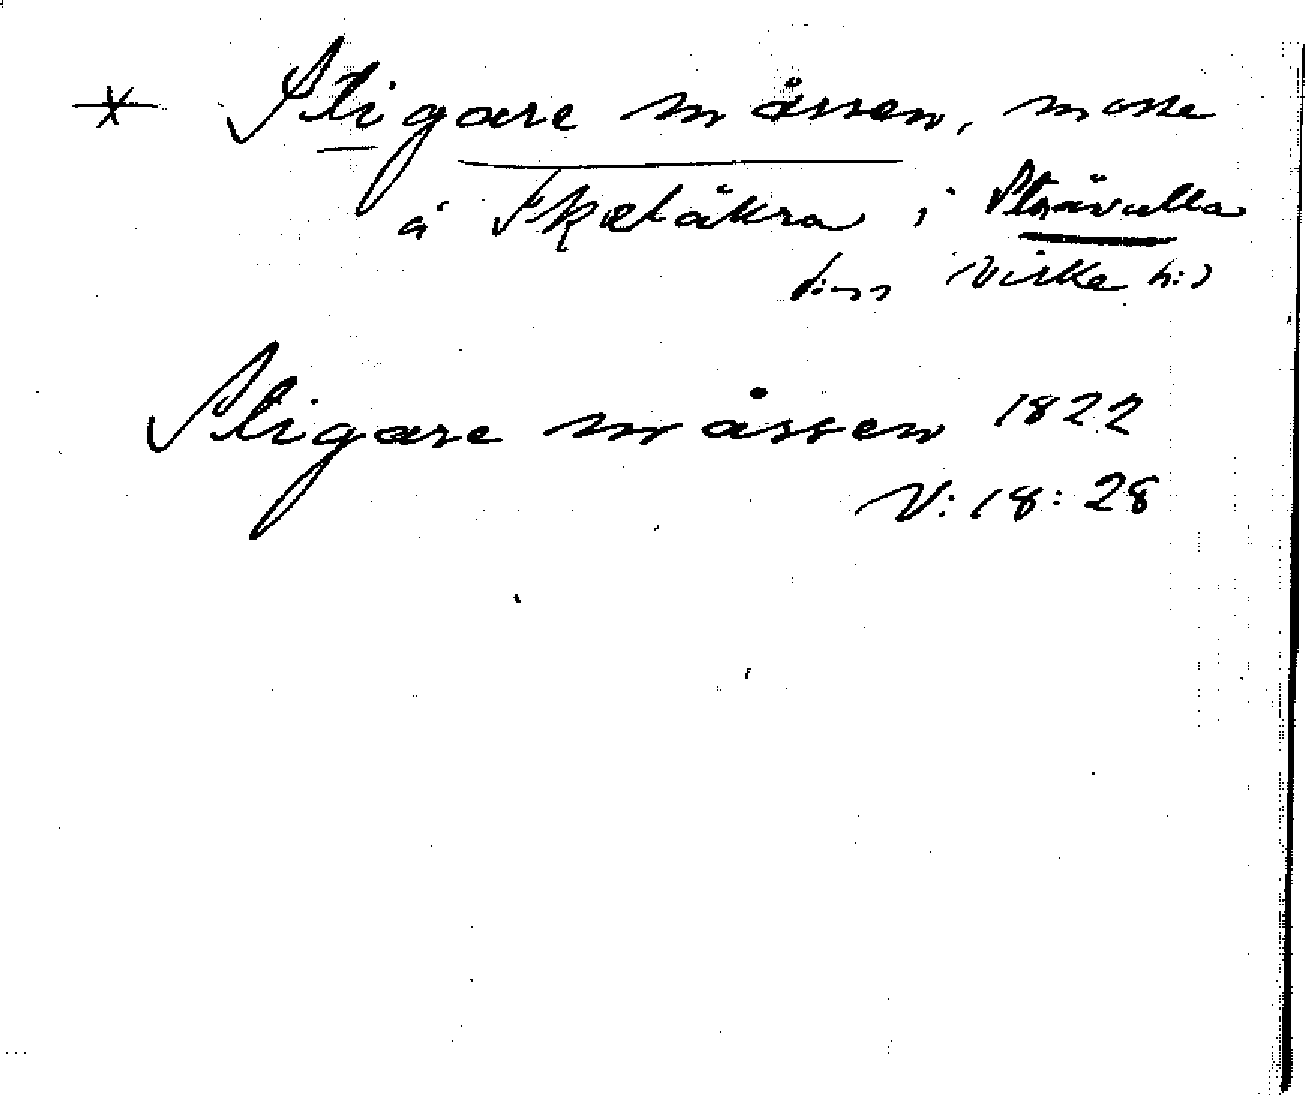 * Stigare måssen, mosse
å Skeläkra i Stråvalla
sn Viske h:d
Stigare måssen 1822
V: 18: 28